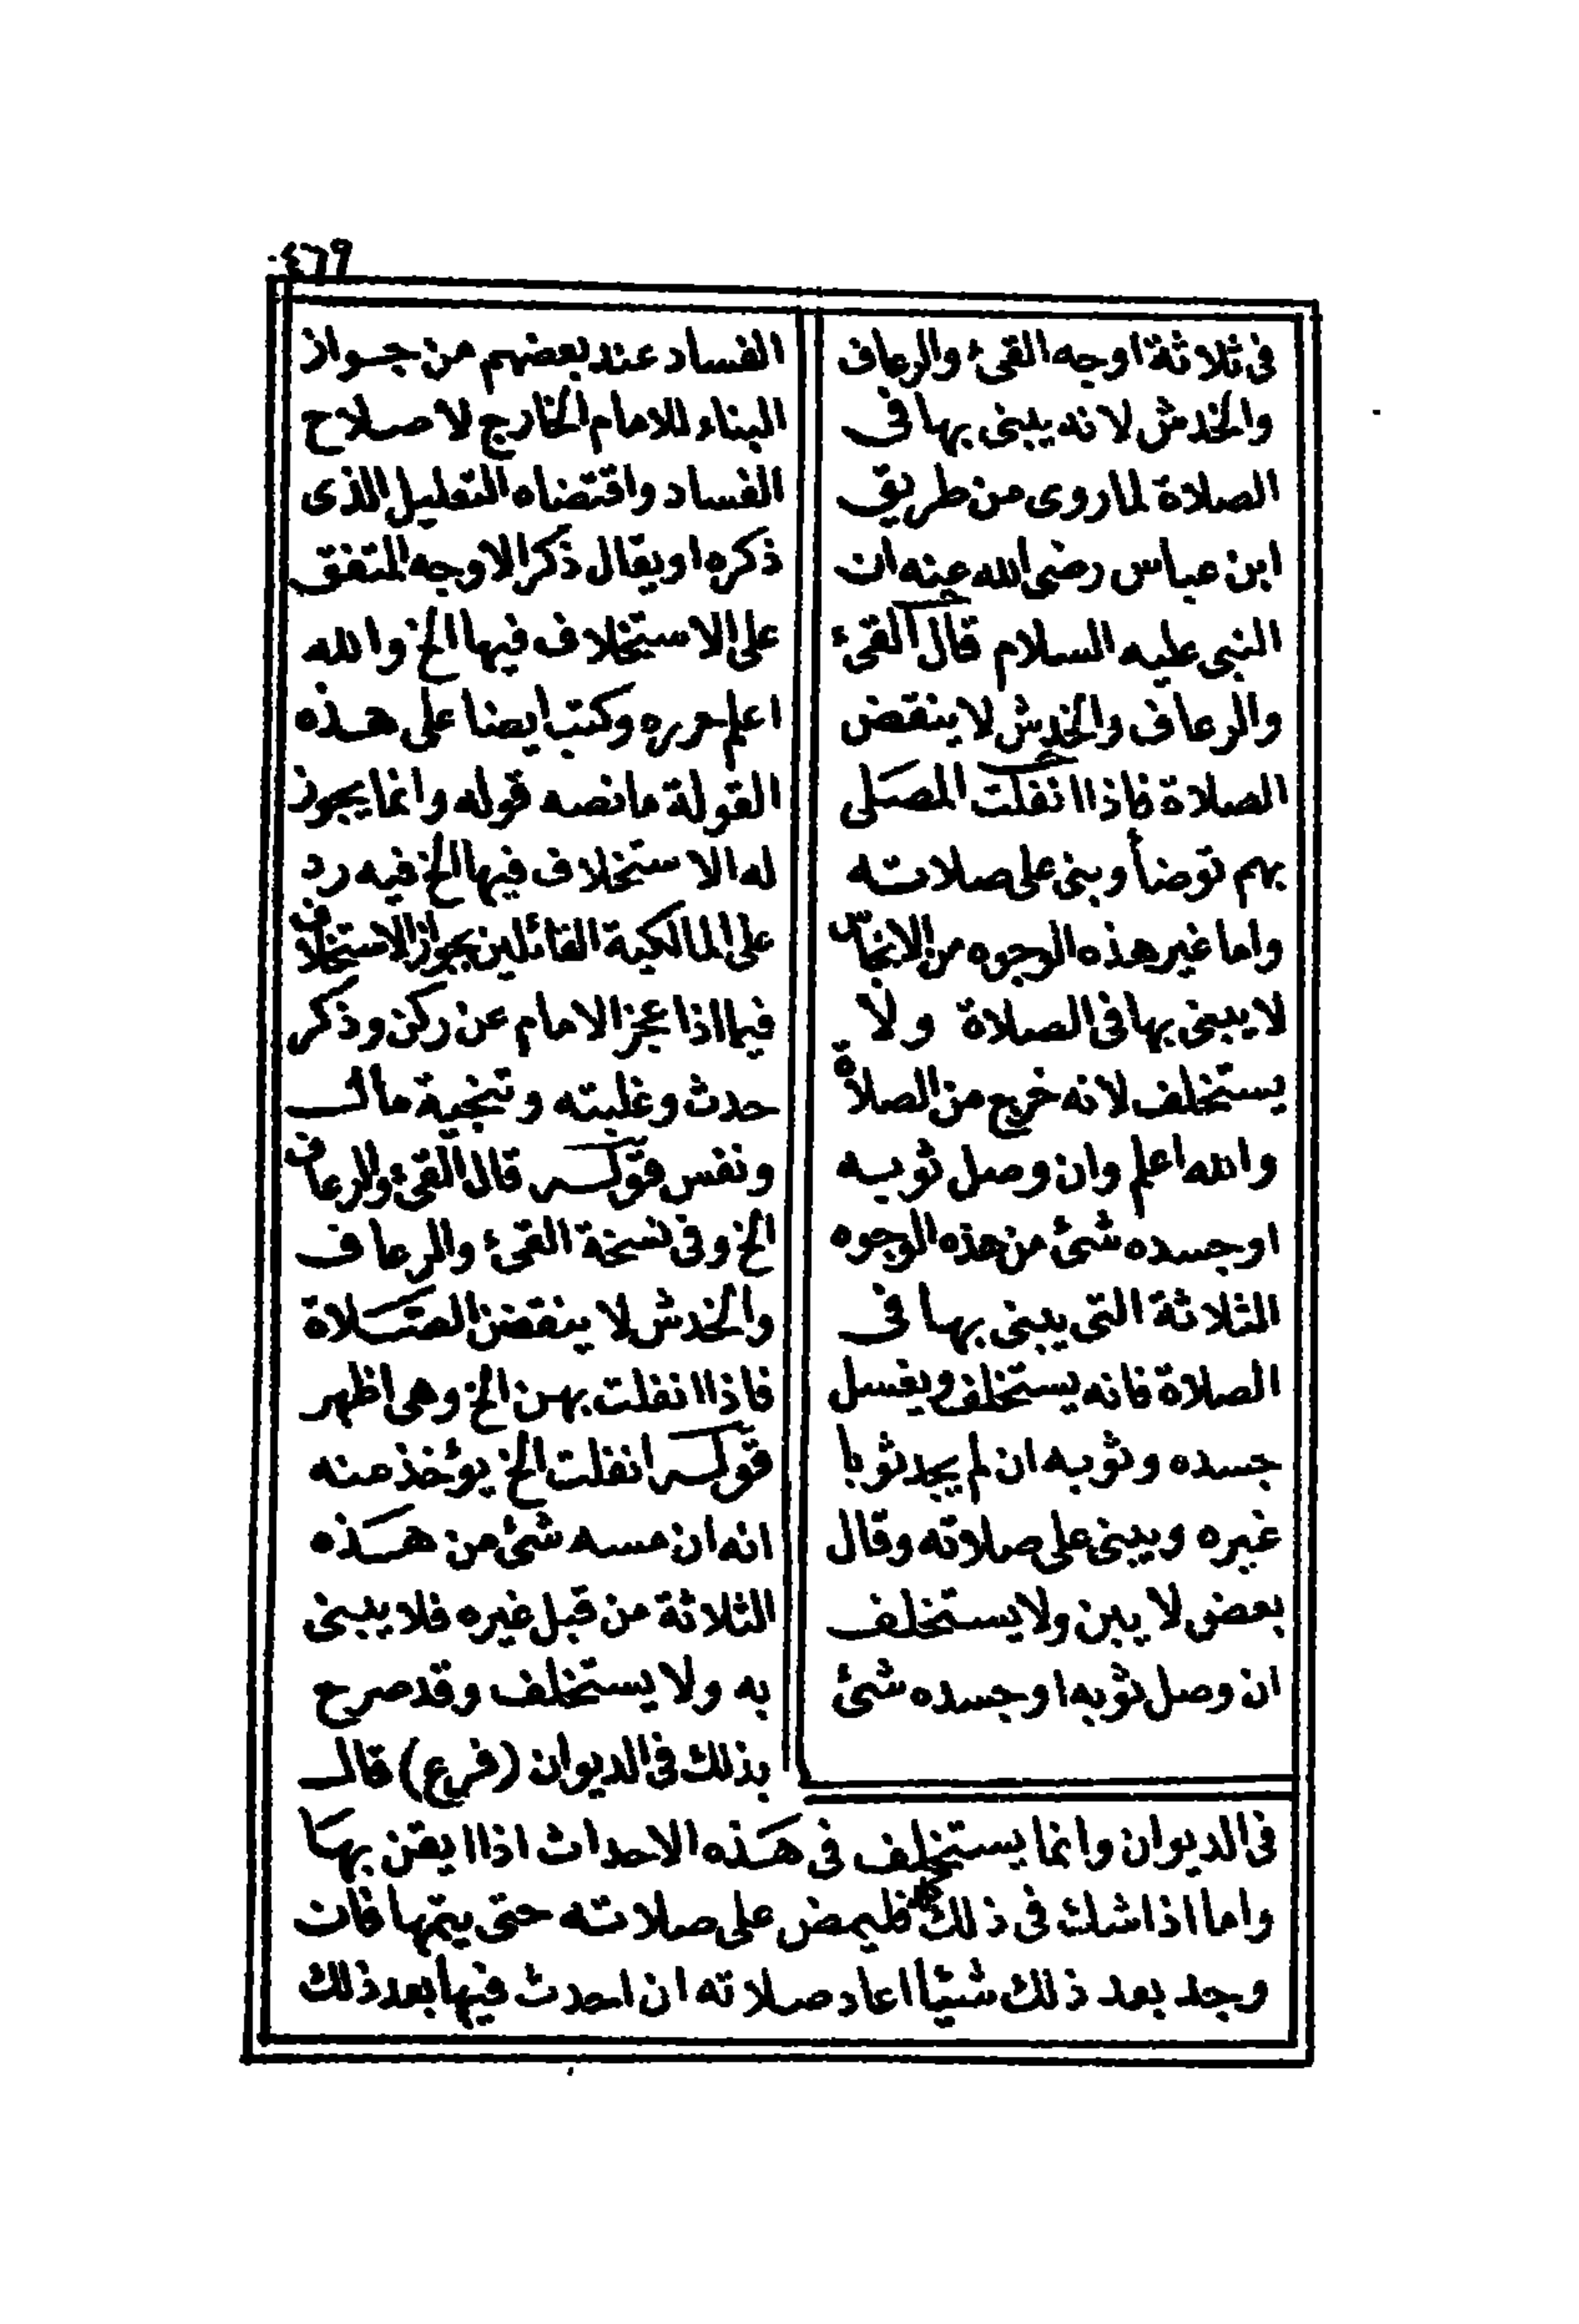 ٤٦٩
في ثلاثة اوجه القئ والرعاف
والخدش لانه يبنى بها في
الصلاة لما روى من طريق
ابن عباس رضى الله عنه ان
النبي عليه السلام قال القئ
والرعاف والخدش لا ينقض
الصلاة فاذا انفلت المصلى
بهم توضأ وبنى على صلاته
واما غير هذه الوجوه من الانجاس
لا يبنى بها في الصلاة ولا
يستخلف لانه خرج من الصلاة
والله اعلم وان وصل ثوبه
او جسده شئ من هذه الوجوه
الثلاثة التي يبنى بها في
الصلاة فانه يستخلف ويغسل
جسده وثوبه ان لم يجد ثوبا
غيره ويبنى على صلاته وقال
بعض لا يبن ولا يستخلف
ان وصل ثوبه او جسده شئ
الفساد عند بعضهم من جواز
البناء للامام الخارج لاصلاح
الفساد واقتضاه التعليل الذى
ذكره او يقال ذكر الاوجه المتفق
على الاستخلاف فيها الخ والله
اعلم حرره وكتب ايضا على هذه
القولة مانصه قوله وانما يجوز
له الاستخلاف فيها الخ فيه رد
على المالكية القائلين بجواز الاستخلاف
فيما اذا عجز الامام عن ركن وذكر
حدث وغلبته وتنجية مال
ونفس قوله قال القئ والرعاف
الخ وفي نسخة القئ والرعاف
والخدش لا ينقضن الصلاة
فاذا انفلت بهن الخ وهى اظهر
قوله انفلت الخ يؤخذ منه
انه ان مسه شئ من هذه
الثلاثة من قبل غيره فلا يبنى
به ولا يستخلف وقد صرح
بذلك في الديوان (فرع) قال
في الديوان وانما يستخلف في هذه الاحداث اذا ايقن بها
واما اذا شك في ذلك كله فليمض على صلاته حتى يتمها فان
وجد بعد ذلك شيئا اعاد صلاته ان احدث فيها بعد ذلك